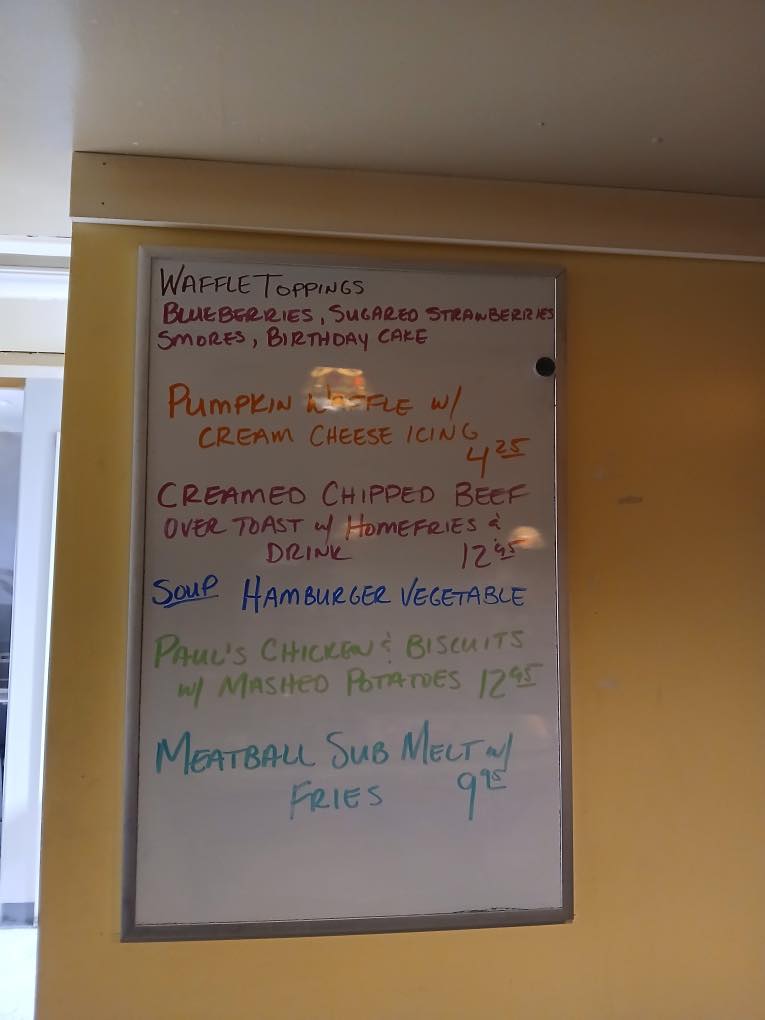 WAFFLE TOPPINGS
BLUEBERRIES, SUGARED STRAWBERRIES
SMORES, BIRTHDAY CAKE
PUMPKIN WAFFLE W/
CREAM CHEESE ICING
4 25
CREAMED CHIPPED BEEF
OVER TOAST W/ HOMEFRIES &
DRINK 12 95
SOUP HAMBURGER VEGETABLE
PAUL'S CHICKEN & BISCUITS
W/ MASHED POTATOES 12 95
MEATBALL SUB MELT W/
FRIES 9 95